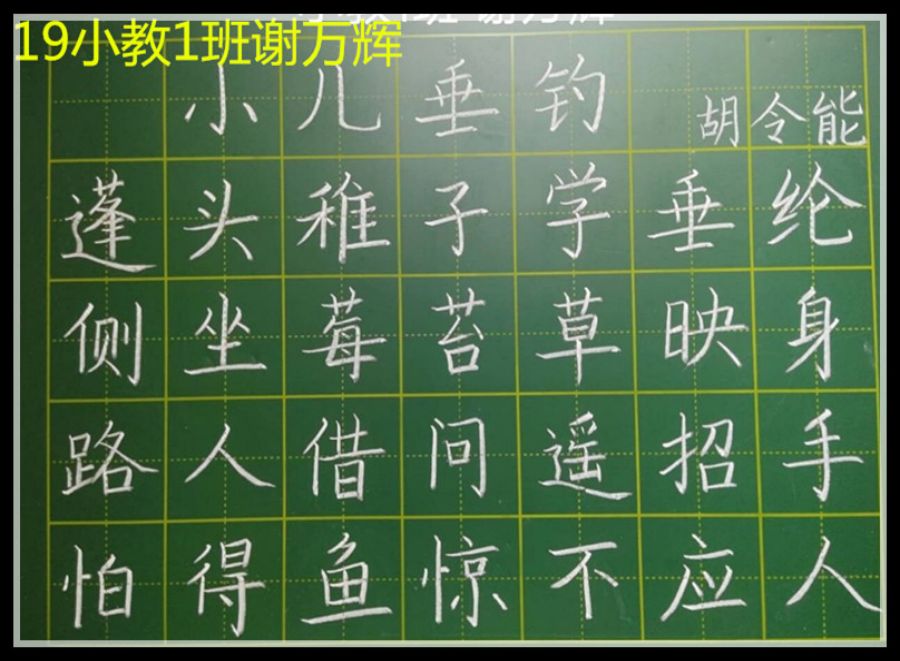 19小教1班谢万辉
小儿垂钓
胡令能
蓬头稚子学垂纶
侧坐莓苔草映身
路人借问遥招手
怕得鱼惊不应人